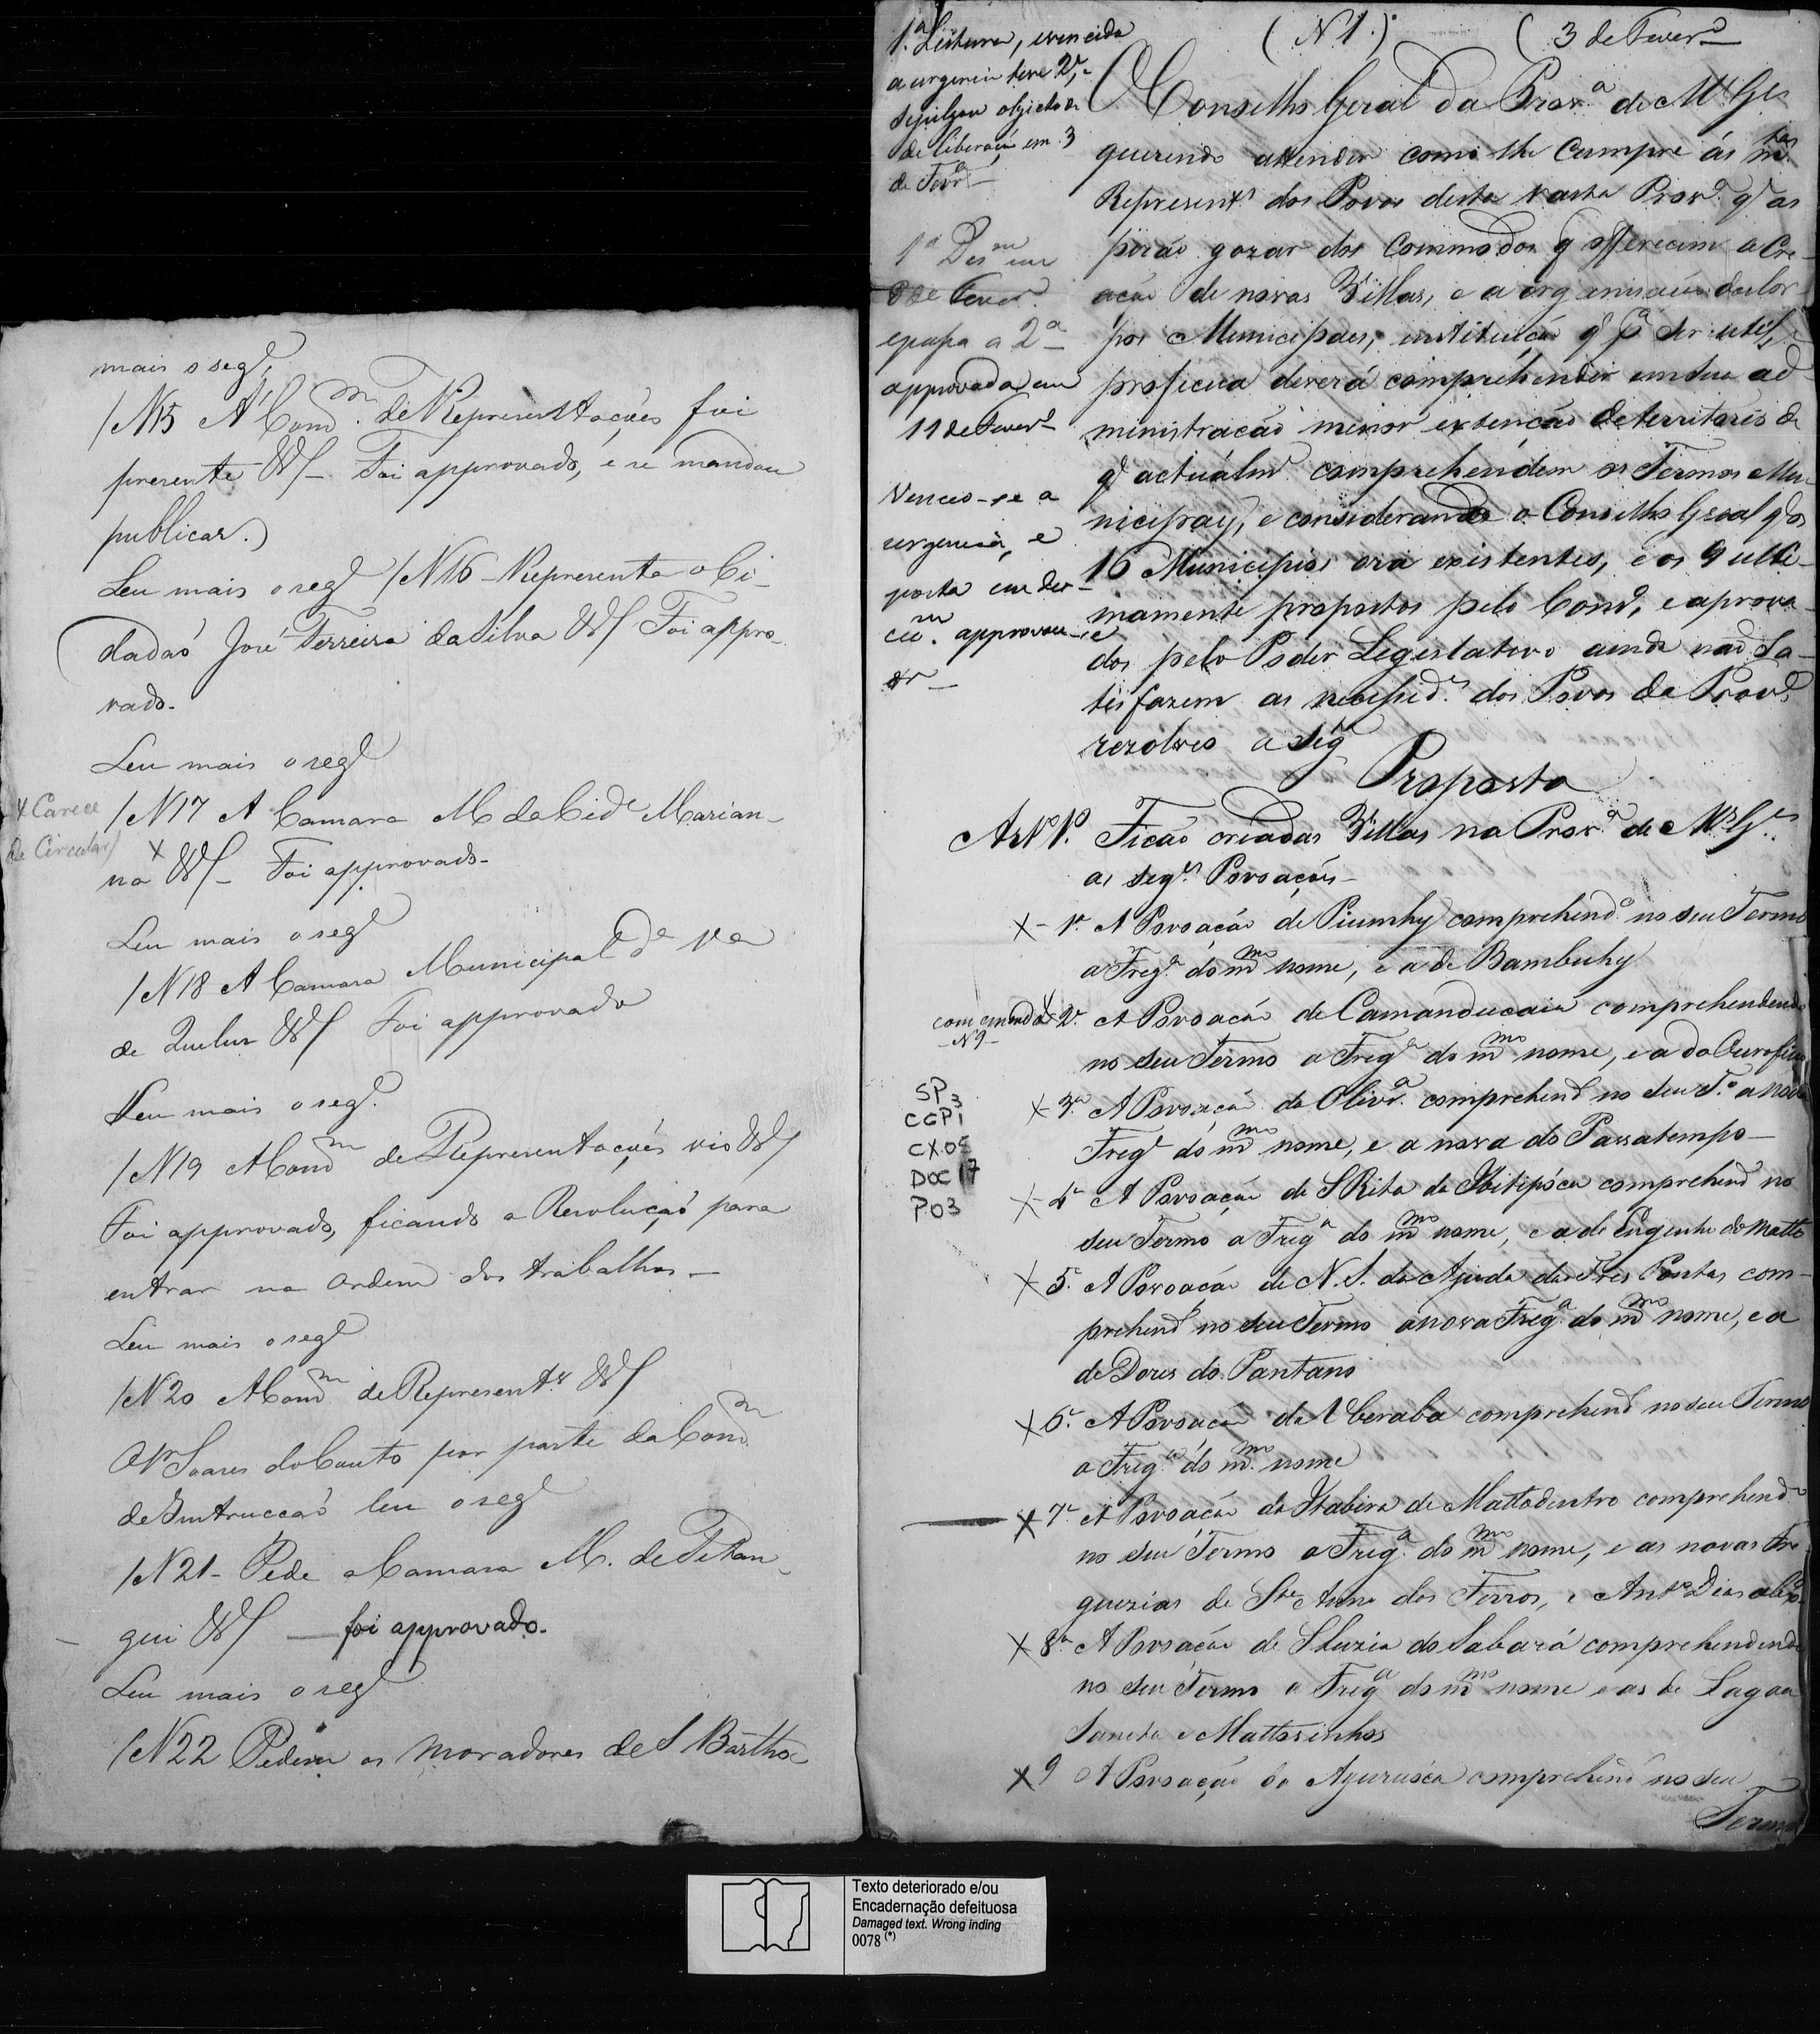 mais o segᵉ
/N15 A' Comᵐ. de Representações foi
presente &ᶜ — Foi approvado, e se mandou
publicar.)
Leu mais o segᵉ /N16 - Representa o Ci-
dadaó José Ferreira da Silva &ᶜ Foi appro-
vado.
Leu mais o segᵉ
/N17 A Camara M da Cidᵉ Marian-
na &ᶜ — Foi approvado -
X Carece
de Circular)
Leu mais o segᵉ
/N18 A Camara Municipal da Vª
de Queluz &ᶜ Foi approvado
Leu mais o segᵉ.
/N19 A Comᵐ de Representações vio &ᶜ
Foi approvado, ficando a Resoluçaó para
entrar na ordem dos trabalhos —
Leu mais o segᵉ
/N20 A Comᵐ de Represent.ˢ &ᶜ
O Sʳ Soares do Couto por parte da Comᵐ
de Instrucçaó leu o segᵉ
/N21 - Pede a Camara M. de Pitan-
gui &ᶜ — foi approvado.
Leu mais o segᵉ
/N22 Pedem os moradores de S Bartho-
1.ª Leitura, e vencida
a urgencia teve 2ª, e
se julgou objecto de
deliberaçaõ em 3
de Fevrº —
1ª Disᵃᵐ em
8 de Fever.
e passa a 2ª
approvada em
11 de Feverº
Venceo-se a
urgencia, e
posta em dis-
cᵃᵐ. approvou-se
(N 1.) (3 de Feverº
O Conselho Geral da Provª de Mˢ Gᵉˢ
querendo attender como lhe cumpre ás mᵗᵃˢ
Represent.ˢ dos Povos desta vasta Provª qᵉ as
piraõ gozar dos Commodos qᵉ offerecem a Cre-
açaõ de novas Villas, e a organisaçaõ dos Cor-
pos Municipaes, instituiçaõ qᵉ pª ser util, e
proficua deverá comprehender em sua ad-
ministraçaõ minor extençaõ de territorio do
qᵉ actualmᵉ comprehendem os Termos Mu-
nicipaes, e considerando o Conselho Geral qᵉ os
16 Municipios ora existentes, e os 9 ulti-
mamente propostos pelo Consº, e aprova-
dos pelo Poder Legislativo ainda naõ Sa-
tisfazem as necessidˢ dos Povos da Provª
rezolveo a segᵉ
Proposta
Artº 1º. Ficaõ criadas Villas na Provª de Mˢ Gˢ.
as segᵉˢ Povoações —
X - 1ª. A Povoaçaõ de Piumhy comprehendº no seu Termo
a Fregª do mᵐᵒ nome, e a de Bambuhy
com emenda X 2ª. A Povoaçaõ de Camanducaia comprehendendo
- Nº 9 -
no seu Termo a Fregª do mᵐᵒ nome, e a do Ouro fino
X 3ª. A Povoaçaõ da Olivrª comprehendº no seu T.º a nova
Fregª do mᵐᵒ nome, e a nova do Passatempo —
X 4ª A Povoaçaõ de S Rita da Ibitipóca comprehendº no
seu Termo a Fregª do mᵐᵒ nome, e a de Engenho do Matto
X 5ª. A Povoaçaõ de N. S. da Ajuda das Tres Pontas com-
prehendº no seu Termo a nova Fregª do mᵐᵒ nome, e a
de Dores do Pantano
X 6ª. A Povoaçaõ da Uberaba comprehendº no seu Termo
a Fregª do mᵐᵒ nome
X 7ª A Povoaçaõ da Itabira de Mattodentro comprehendº
no seu Termo a Fregª do mᵐᵒ nome, e as novas Fre
guezias de Stª Anna dos Ferros, e Antº Dias abº
X 8ª A Povoaçaõ de S Luzia do Sabará comprehendendo
no seu Termo a Fregª do mᵐᵒ nome e as de Lagoa
Sancta e Mattosinhos
X 9 A Povoaçaõ da Ayuruóca comprehendº no seu
Termo
SP 3
CGP1
CX.05
DOC 17
P03
Texto deteriorado e/ou
Encadernação defeituosa
Damaged text. Wrong inding
0078 (*)